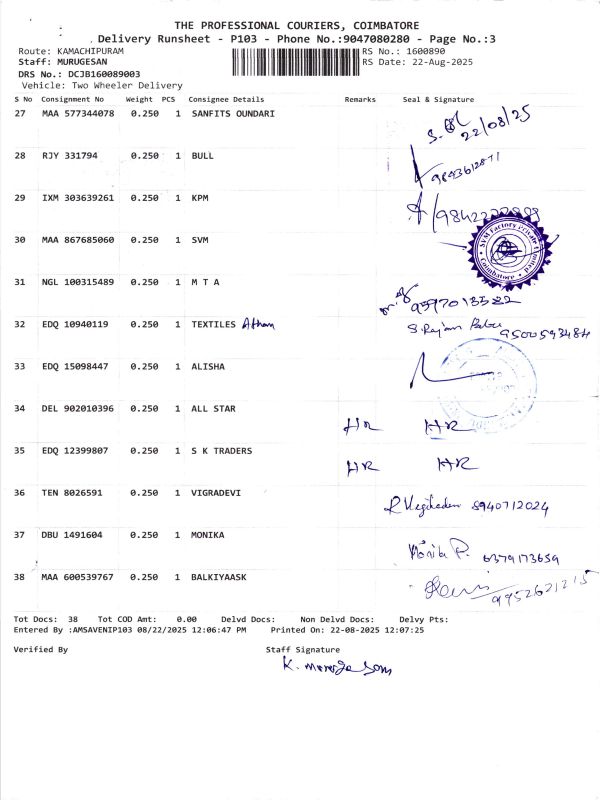 THE PROFESSIONAL COURIERS, COIMBATORE
Delivery Runsheet - P103 - Phone No.:9047080280 - Page No.:3
Route: KAMACHIPURAM RS No.: 1600890
Staff: MURUGESAN RS Date: 22-Aug-2025
DRS No.: DCJB160089003
Vehicle: Two Wheeler Delivery
S No Consignment No Weight PCS Consignee Details Remarks Seal & Signature
27 MAA 577344078 0.250 1 SANFITS OUNDARI 22/08/25
28 RJY 331794 0.250 1 BULL
29 IXM 303639261 0.250 1 KPM
30 MAA 867685060 0.250 1 SVM
SVM Factory Private Coimbatore
31 NGL 100315489 0.250 1 M T A
32 EDQ 10940119 0.250 1 TEXTILES S. Rajan Babu 9500593484
33 EDQ 15098447 0.250 1 ALISHA
34 DEL 902010396 0.250 1 ALL STAR HR HR
35 EDQ 12399807 0.250 1 S K TRADERS HR HR
36 TEN 8026591 0.250 1 VIGRADEVI 8940712024
37 DBU 1491604 0.250 1 MONIKA Monika P. 6379173659
38 MAA 600539767 0.250 1 BALKIYAASK 9952621215
Tot Docs: 38 Tot COD Amt: 0.00 Delvd Docs: Non Delvd Docs: Delvy Pts:
Entered By :AMSAVENIP103 08/22/2025 12:06:47 PM Printed On: 22-08-2025 12:07:25
Verified By Staff Signature
K. Murugesan